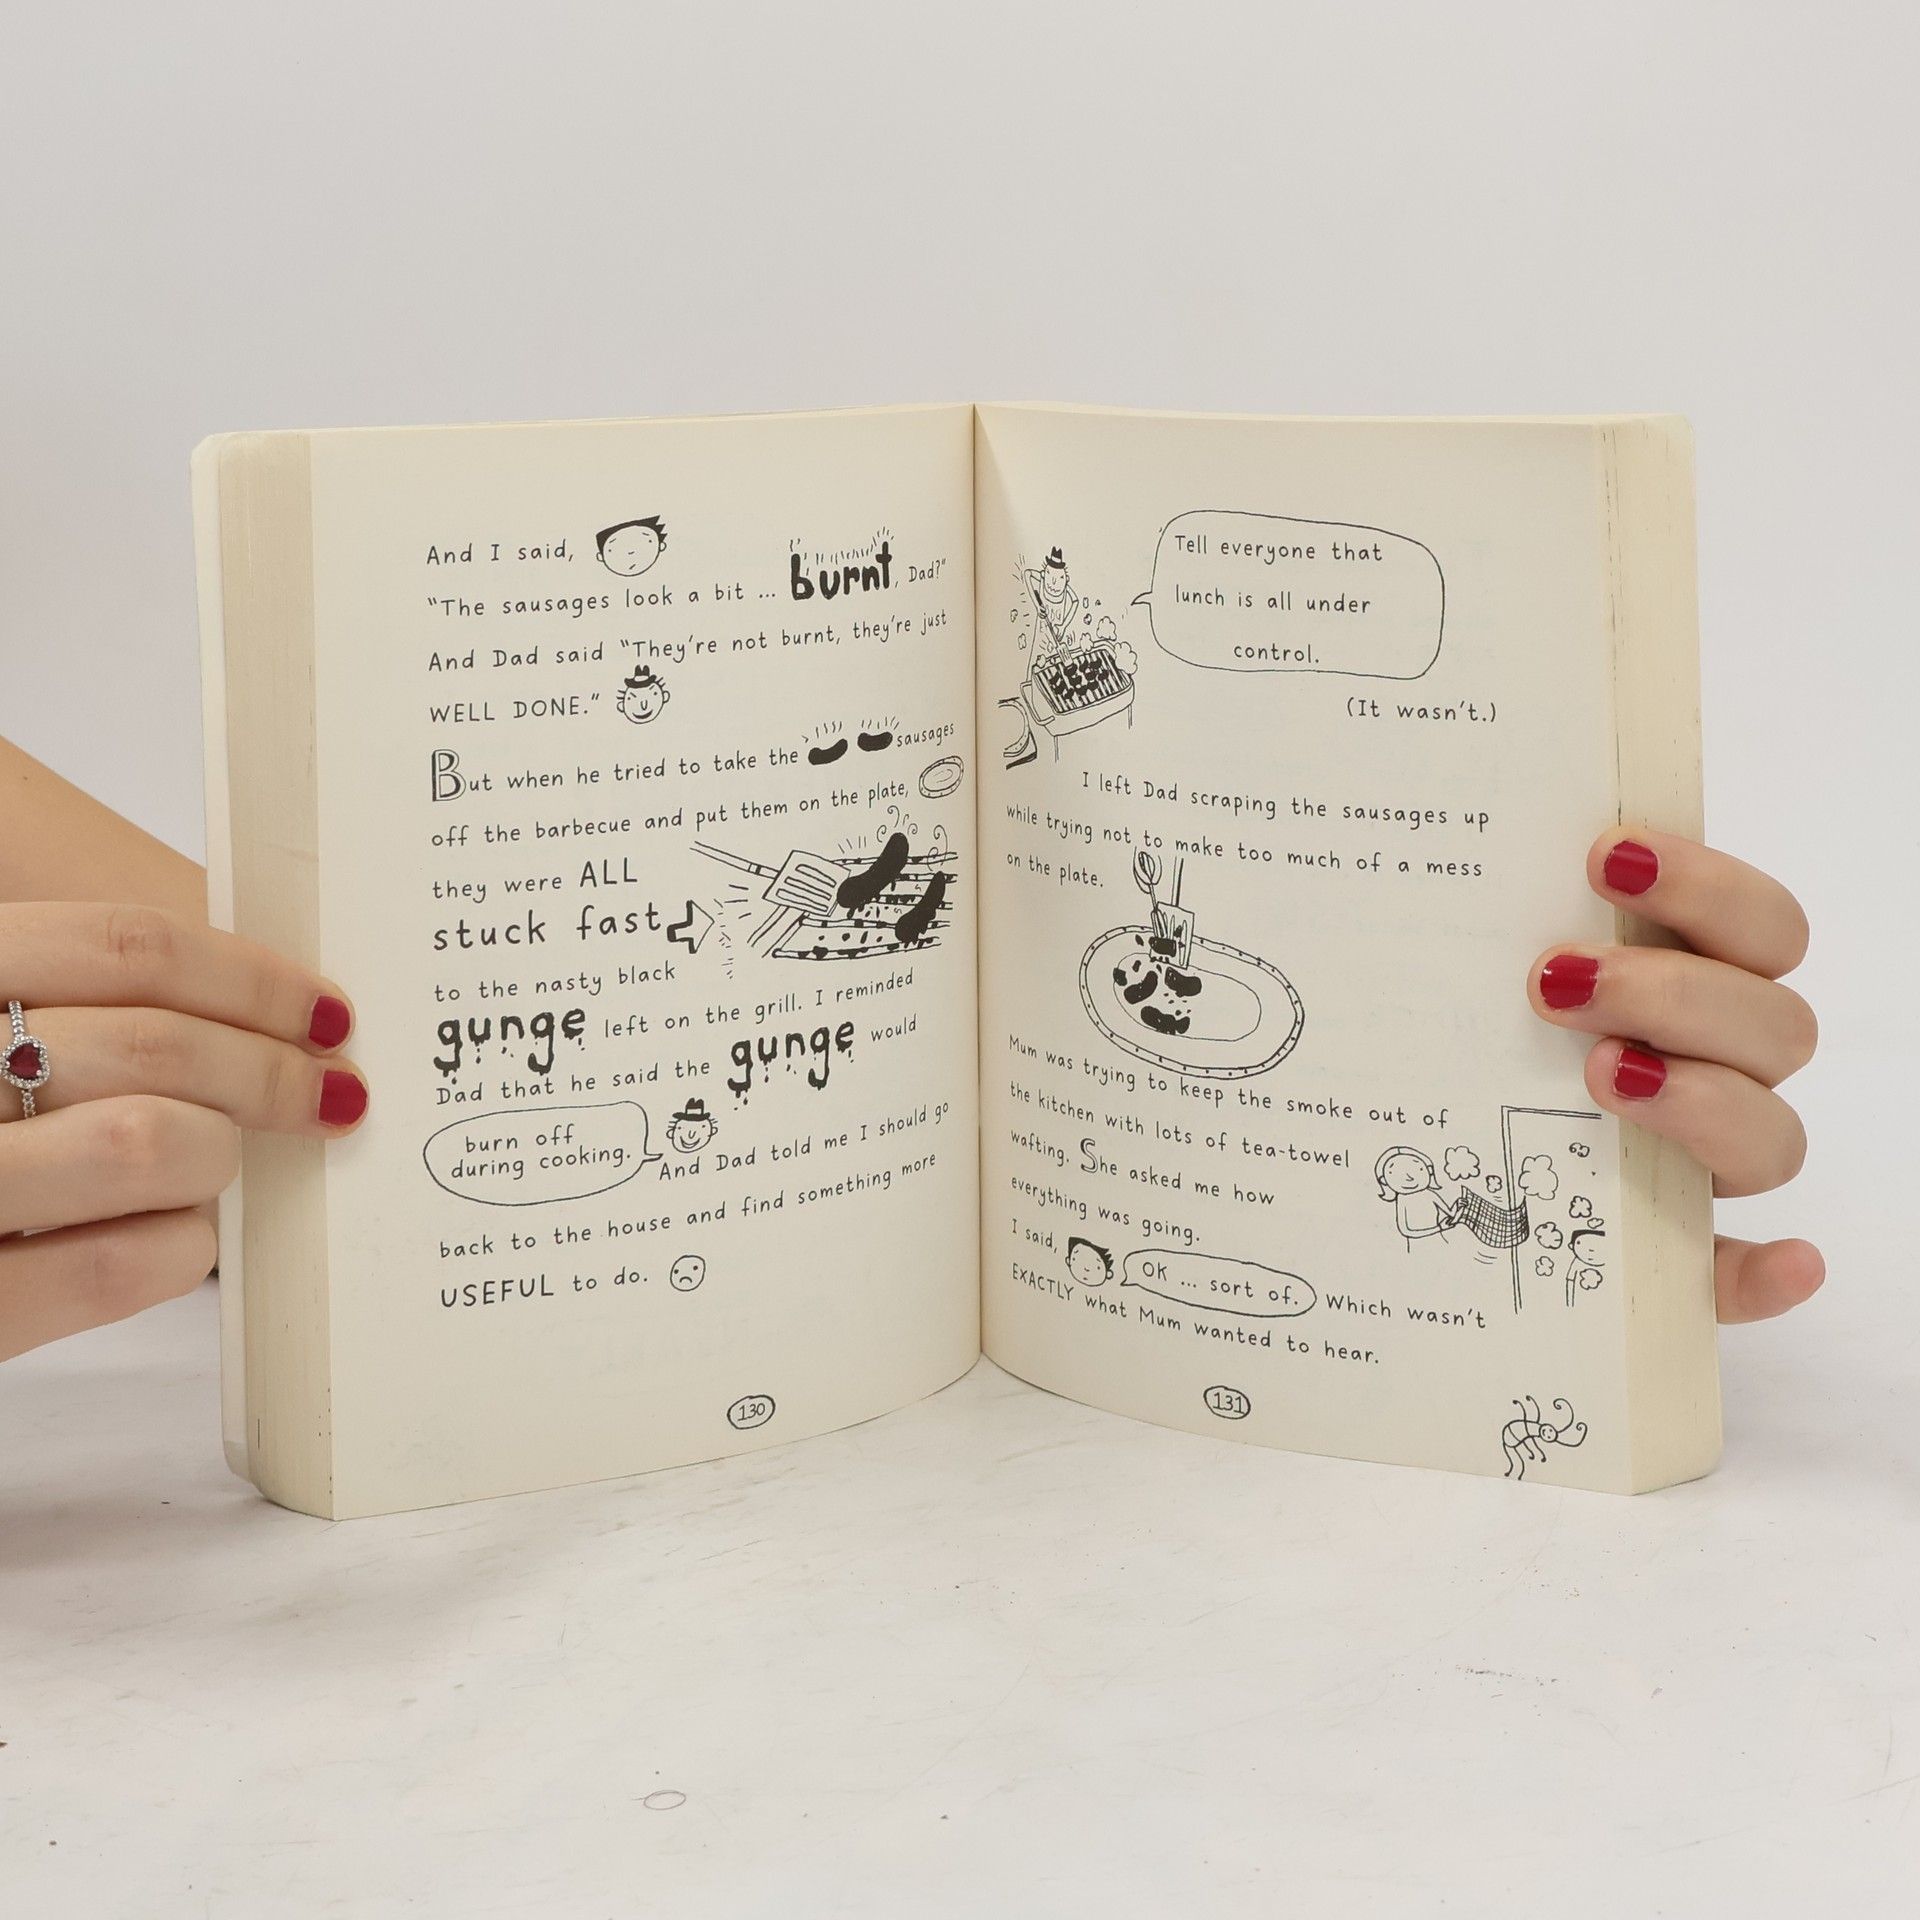 And I said,
"The sausages look a bit ... burnt, Dad?"
And Dad said "They're not burnt, they're just
WELL DONE."
But when he tried to take the sausages
off the barbecue and put them on the plate,
they were ALL
stuck fast
to the nasty black
gunge left on the grill. I reminded
Dad that he said the gunge would
burn off
during cooking.
And Dad told me I should go
back to the house and find something more
USEFUL to do.
130
Tell everyone that
lunch is all under
control.
(It wasn't.)
I left Dad scraping the sausages up
while trying not to make too much of a mess
on the plate.
Mum was trying to keep the smoke out of
the kitchen with lots of tea-towel
wafting. She asked me how
everything was going.
I said, OK ... sort of. Which wasn't
EXACTLY what Mum wanted to hear.
131